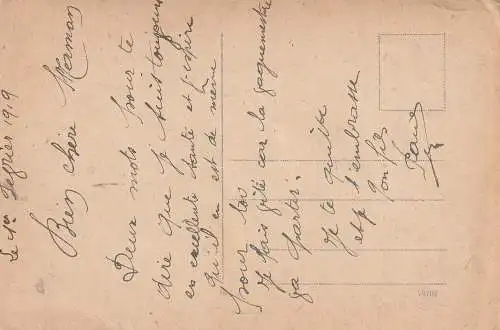 Le 1er Fefrier 1919
Bien chère Maman
Deux mots pour te
dire que je suis toujours
en excellente santé et j'espère
qu'il en est de même
pour toi
Je fais vite car la
va partir.
Je te quitte
et t'embrasse
Ton fils